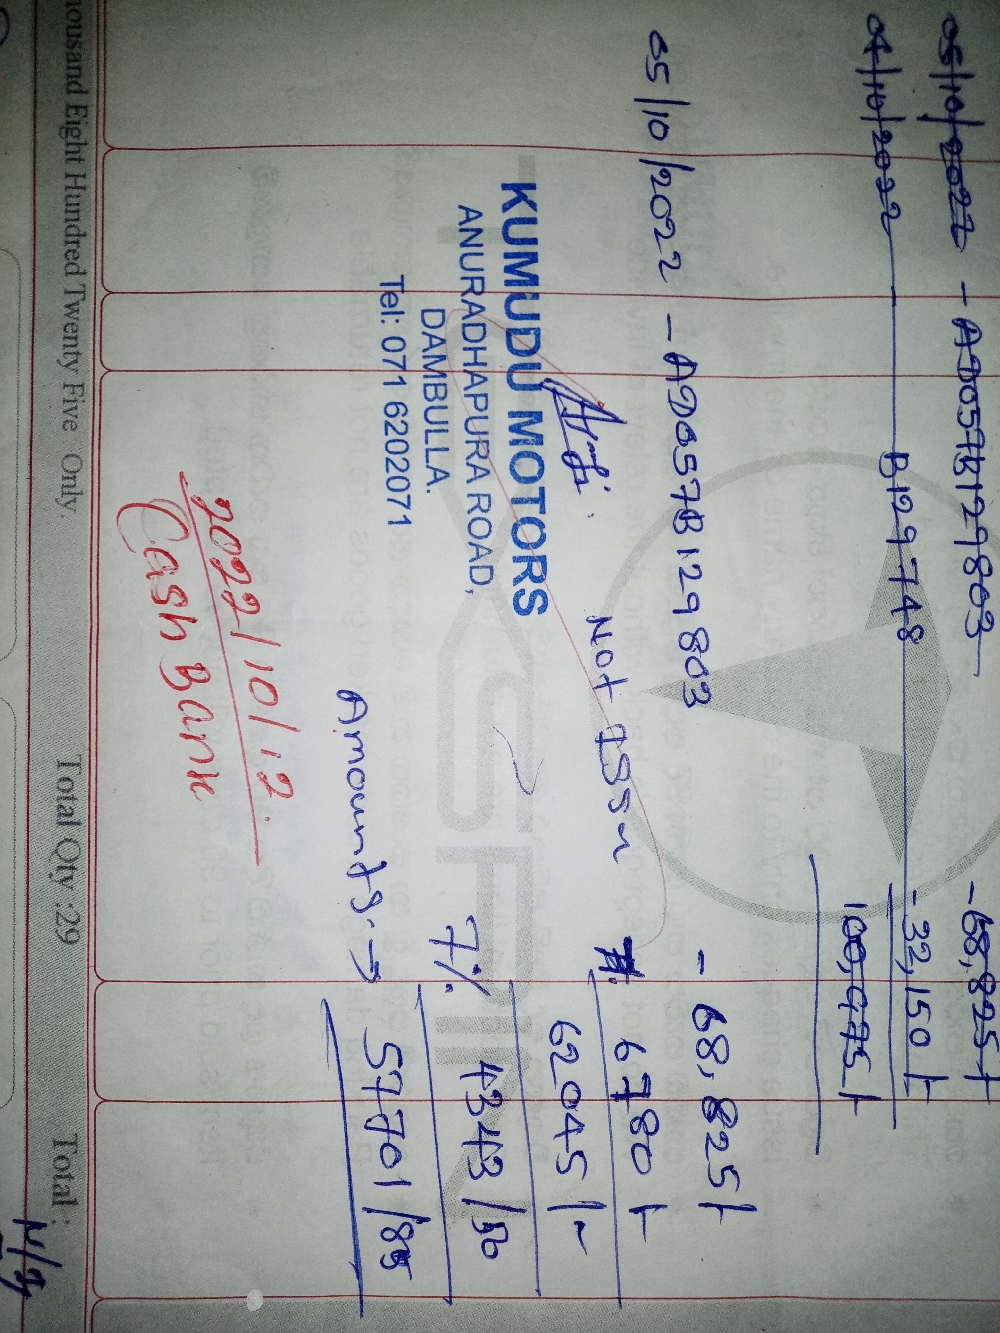 05/10/2022 - AD057B129803 - 68,825/-
04/10/2022 B129748 - 32,150/-
100,975/-
05/10/2022 - AD057B129803 - 68,825/-
Not Issu 6780/-
62045/-
KUMUDU MOTORS
ANURADHAPURA ROAD,
DAMBULLA.
Tel: 071 6202071
7% 4343/50
Amounts → 57701/85
2022/10/12
Cash Bank
housand Eight Hundred Twenty Five Only. Total Qty :29 Total :